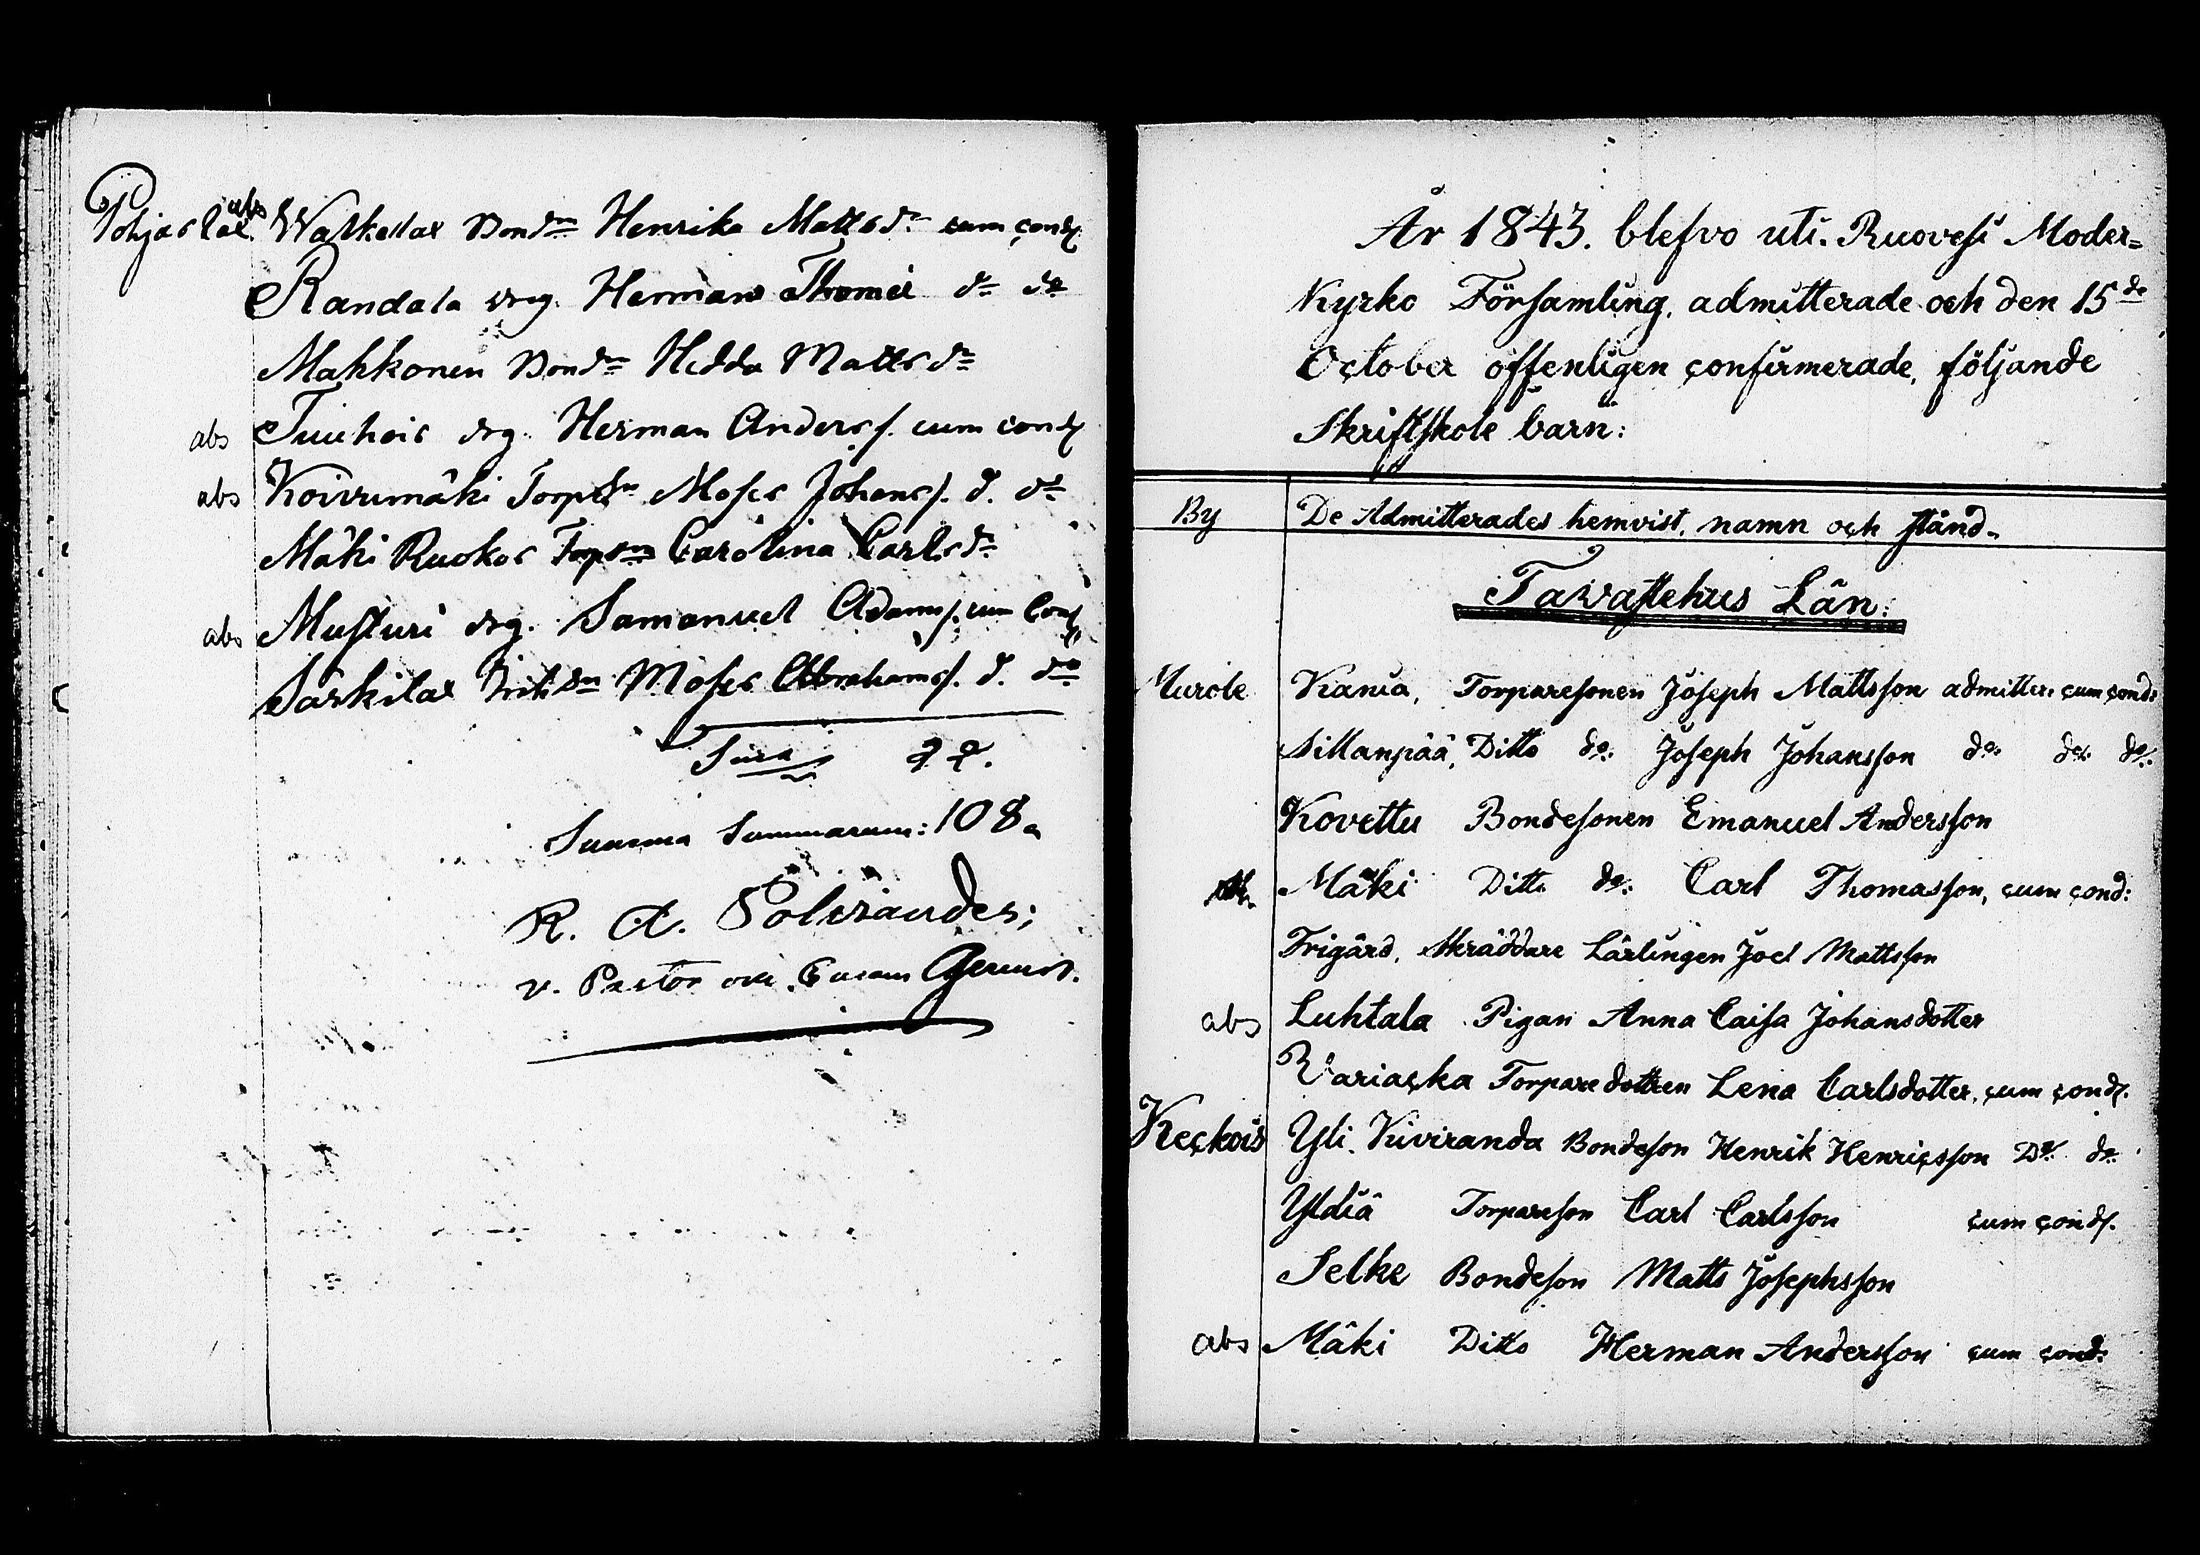 Pohjaslax abs Waskelax Bondn Henrika Mattsdr cum cond
Randala drg. Herman Thomæ do do
Mahkonen Bondn Hedda Mattsdr
abs Tuuhois drg. Herman Anders s. cum cond
abs Koivumäki Torpsn Moses Johans s. d. do
Mäki Ruokos Torpsn Carolina Carlsdr
abs Musturi drg. Samanuel Adams s. cum Cond
Särkilax Moses Abrahams s. d. do
Summa Summarum: 108
R. A. Polviander;
v. Pastor
År 1843. blefvo uti Ruovesi Moder=
Kyrko Församling, admitterade och den 15de
October offentligen confirmerade, följande
Skriftskole barn:
By De Admitterades hemvist, namn och stånd.
Tavastehus Län:
Murole Kania, Torparesonen Joseph Mattsson admitter: cum cond:
Sillanpää, Ditto do: Joseph Johansson do: do: do:
Kovettu Bondesonen Emanuel Andersson
Mäki Ditto do: Carl Thomasson, cum cond:
Frigård, Skräddare Lärlingen Joel Mattsson
abs Luhtala Pigan Anna Caisa Johansdotter
Variacka Torparedottren Lena Carlsdotter, cum cond.
Keckois Yli. Kiviranda Bondeson Henrik Henricsson Do. do
Yldiä Torpareson Carl Carlsson cum cond.
Selke Bondeson Matts Josephsson
abs Mäki Ditto Herman Andersson cum cond: